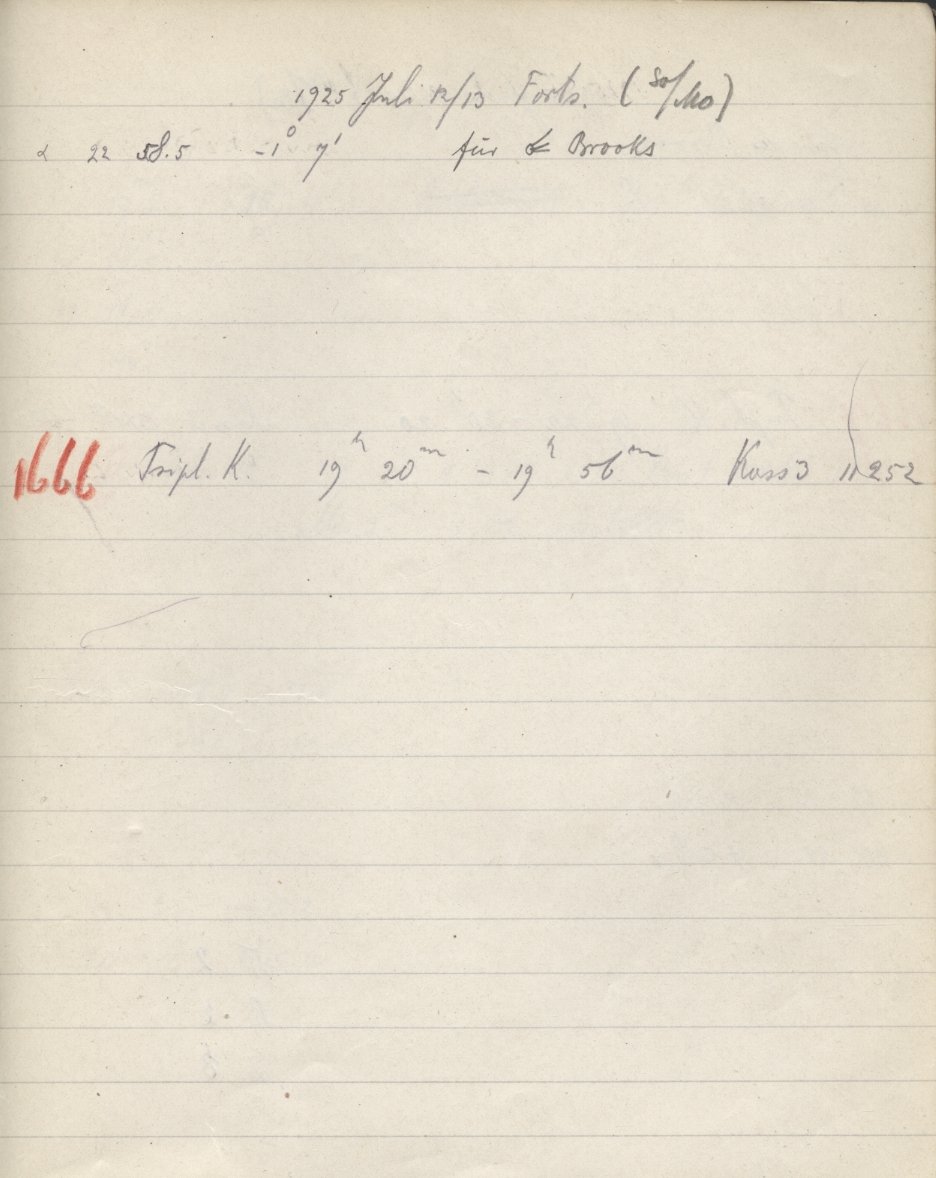 1925 Juli 12/13 Forts. (So/Mo)
α 22 58.5 -1° 7' für ☄ Brooks
1666 Tripl. K. 19h 20m - 19h 56m Kass 3 11252